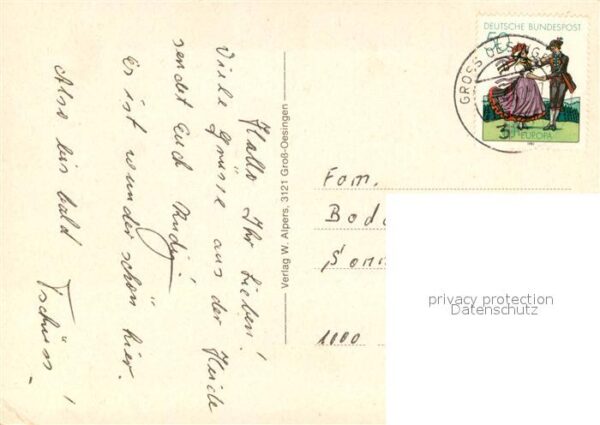 Hallo Ihr Lieben!
Viele Grüsse aus der Heide
sendet Euch Rudy!
Es ist wunderschön hier.
Also bis bald Tschüss!
Verlag W. Alpers, 3121 Groß-Oesingen
DEUTSCHE BUNDESPOST
50
EUROPA
GROSS OESINGEN
31
Fam.
Bod
Sonn
1000
privacy protection
Datenschutz